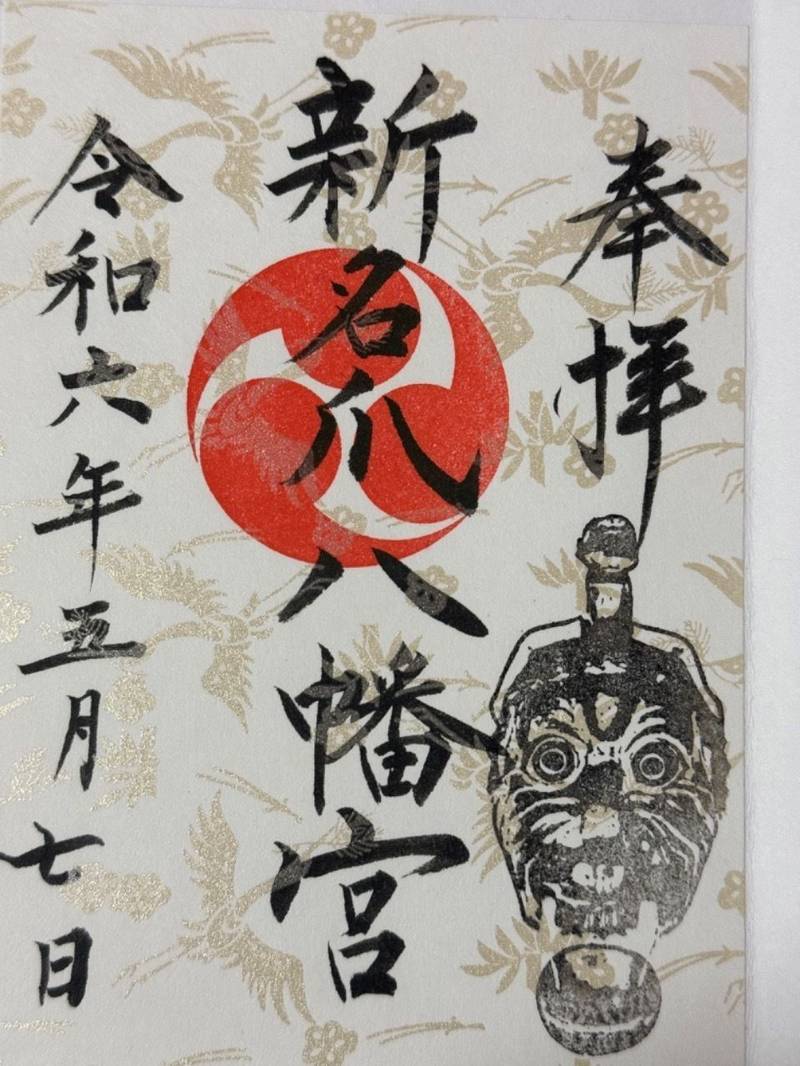 奉拝
新名爪八幡宮
令和六年五月七日